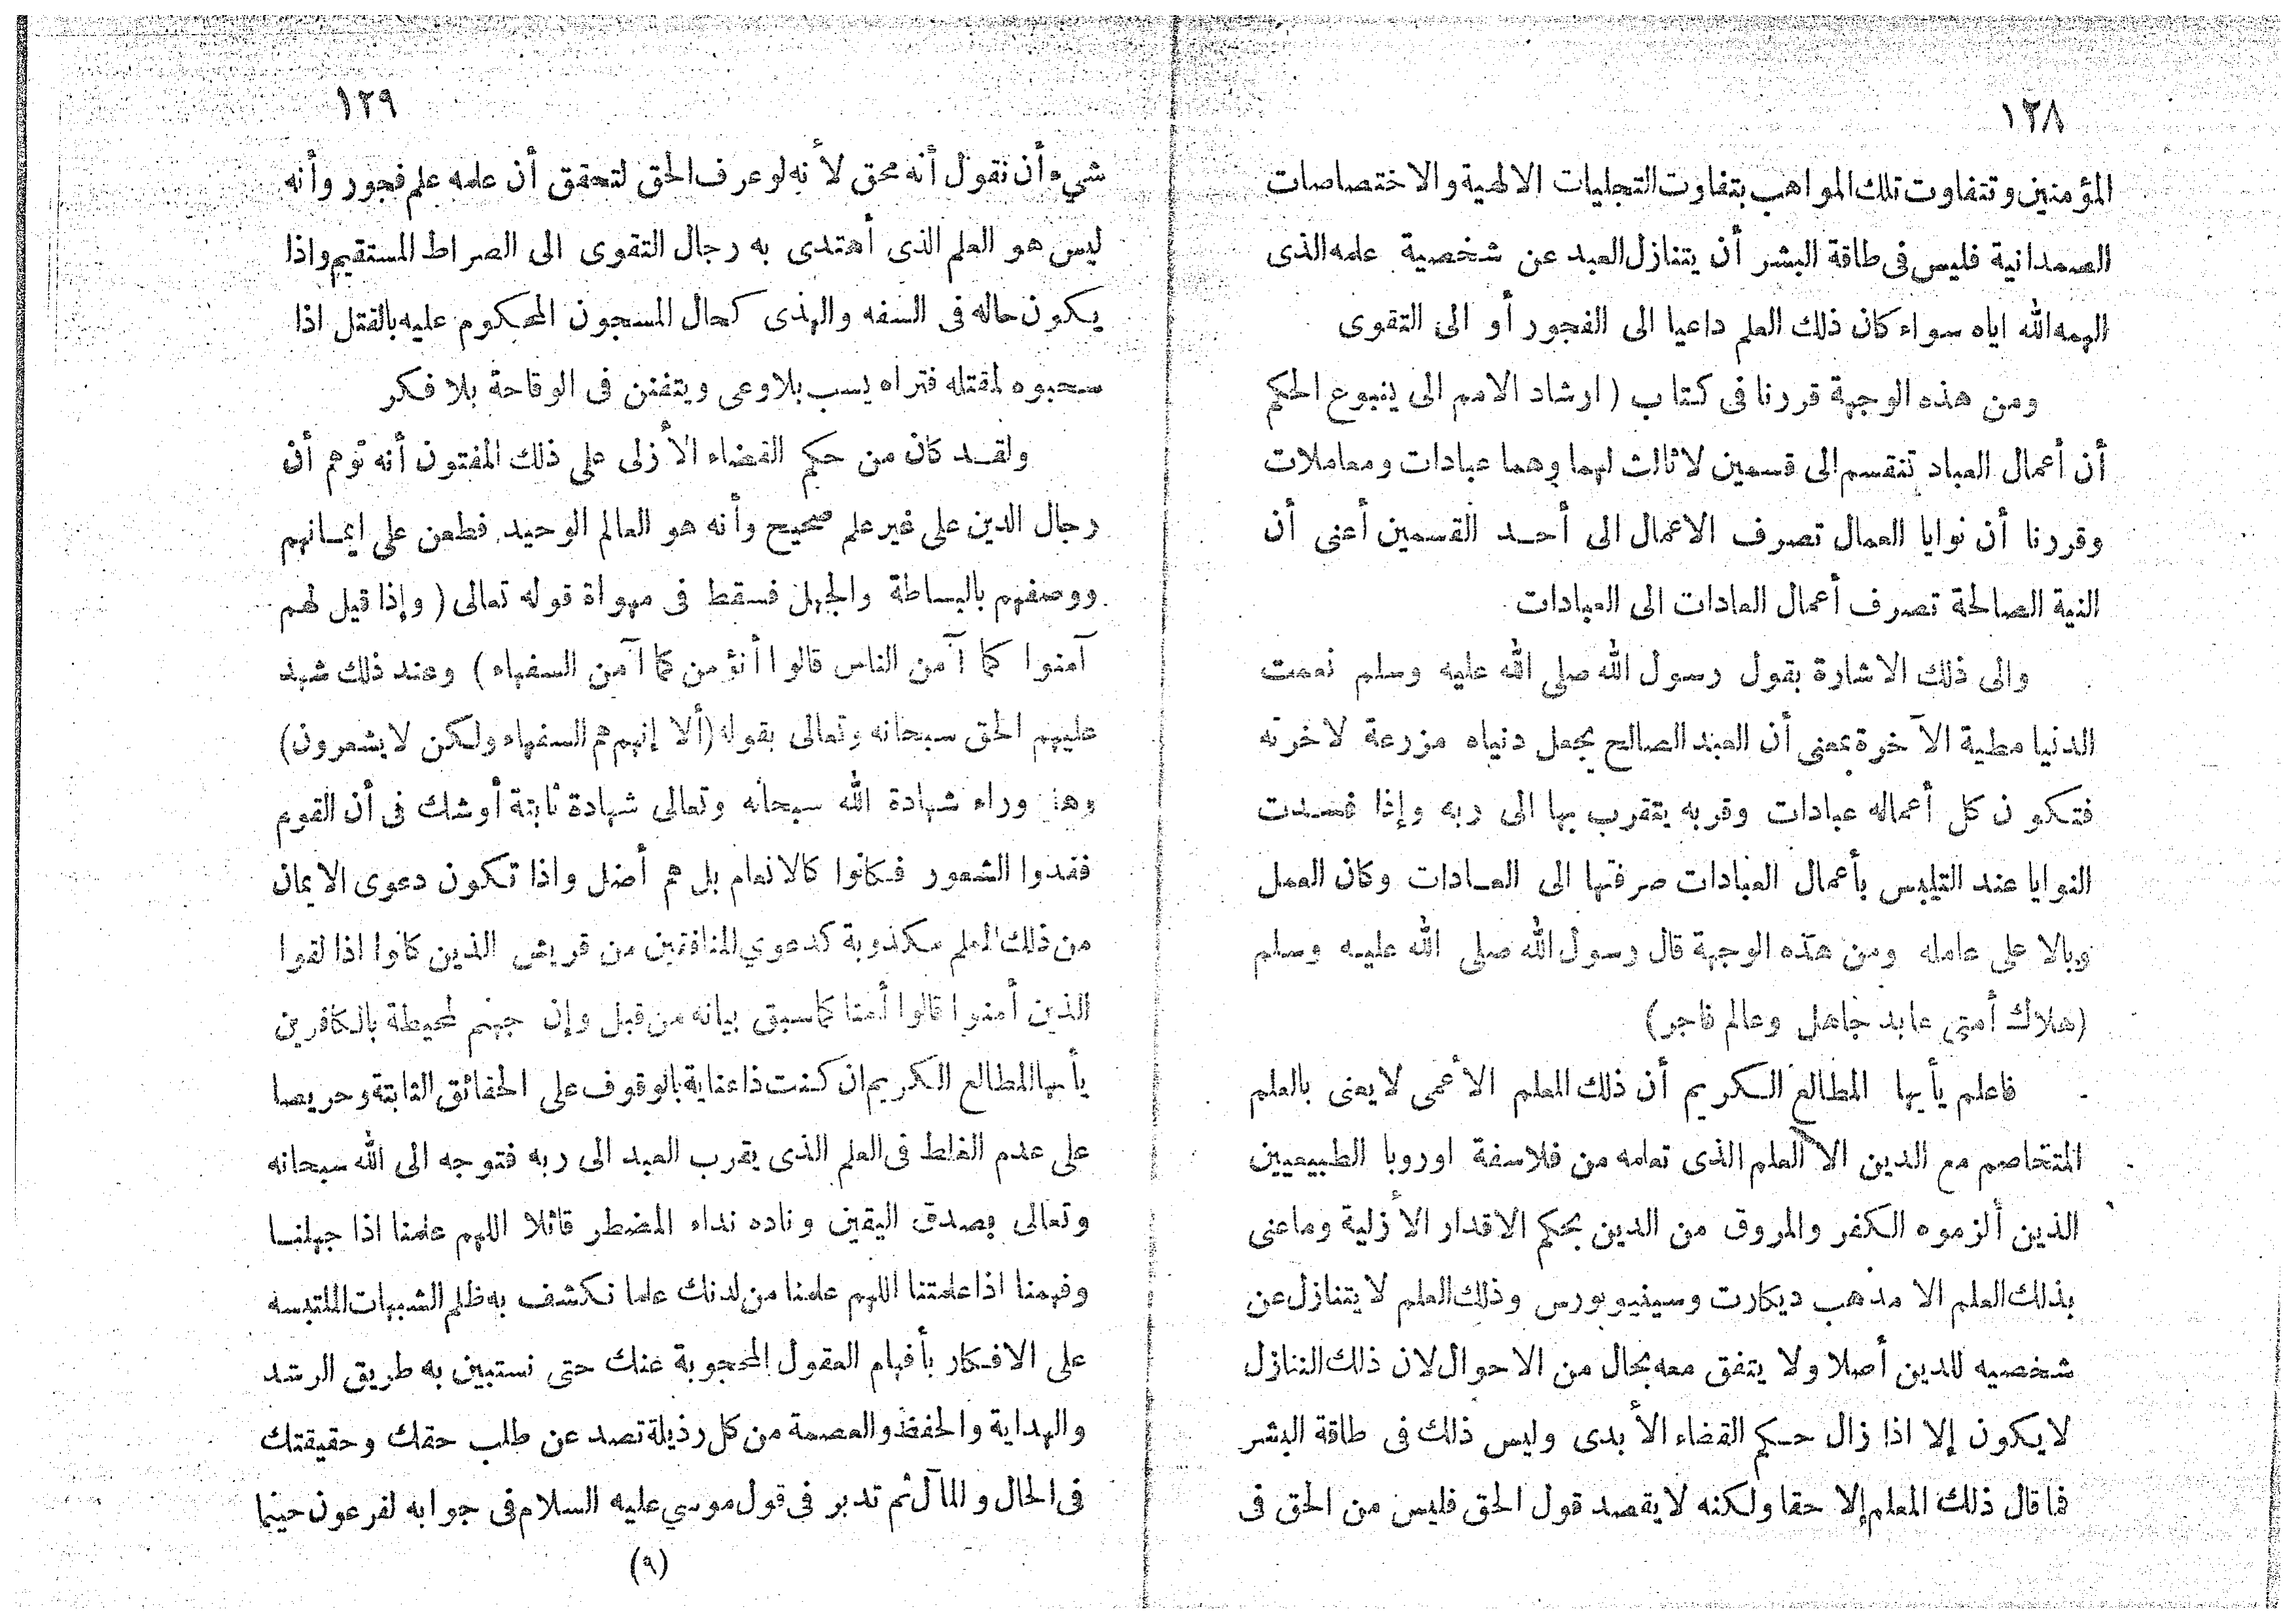 ١٢٨
المؤمنين وتتفاوت تلك المواهب بتفاوت التجليات الالهية والاختصاصات
الصمدانية فليس فى طاقة البشر أن يتنازل العبد عن شخصية علمه الذى
الهمه الله اياه سواء كان ذلك العلم داعيا الى الفجور أو الى التقوى
ومن هذه الوجهة قررنا فى كتاب ( ارشاد الامم الى ينبوع الحكم
أن أعمال العباد تنقسم الى قسمين لا ثالث لهما وهما عبادات ومعاملات
وقررنا أن نوايا العمال تصرف الاعمال الى أحد القسمين أعنى أن
النية الصالحة تصرف أعمال العادات الى العبادات
والى ذلك الاشارة بقول رسول الله صلى الله عليه وسلم نعمت
الدنيا مطية الآخرة بمعنى أن العبد الصالح يجعل دنياه مزرعة لاخرته
فتكون كل أعماله عبادات وقربه يتقرب بها الى ربه وإذا فسدت
النوايا عند التلبس بأعمال العبادات صرفتها الى العادات وكان العمل
وبالا على عامله ومن هذه الوجهة قال رسول الله صلى الله عليه وسلم
(هلاك أمتى عابد جاهل وعالم فاجر)
فاعلم يأيها المطالع الكريم أن ذلك المعلم الأعمى لا يعنى بالعلم
المتخاصم مع الدين الا العلم الذى تعلمه من فلاسفة اوروبا الطبيعيين
الذين ألزموه الكفر والمروق من الدين بحكم الاقدار الأزلية وما عنى
بذلك العلم الا مذهب ديكارت وسينيوبورس وذلك العلم لا يتنازل عن
شخصيه للدين أصلا ولا يتفق معه بحال من الاحوال لان ذلك التنازل
لا يكون إلا اذا زال حكم القضاء الأبدى وليس ذلك فى طاقة البشر
فما قال ذلك المعلم إلا حقا ولكنه لا يقصد قول الحق فليس من الحق فى
١٢٩
شيء أن نقول أنه محق لأنه لو عرف الحق لتحقق أن علمه علم فجور وأنه
ليس هو العلم الذى أهتدى به رجال التقوى الى الصراط المستقيم واذا
يكون حاله فى السفه والهذى كحال المسجون المحكوم عليه بالقتل اذا
سحبوه لمقتله فتراه يسب بلا وعى ويتفنن فى الوقاحة بلا فكر
ولقد كان من حكم القضاء الأزلى على ذلك المفتون أنه توهم أن
رجال الدين على غير علم صحيح وأنه هو العالم الوحيد فطعن على ايمانهم
ووصفهم بالبساطة والجهل فسقط فى مهواة قوله تعالى ( وإذا قيل لهم
آمنوا كما آمن الناس قالوا أنؤمن كما آمن السفهاء ) وعند ذلك شهد
عليهم الحق سبحانه وتعالى بقوله (ألا إنهم هم السفهاء ولكن لا يشعرون)
وهل وراء شهادة الله سبحانه وتعالى شهادة ثابتة أو شك فى أن القوم
فقدوا الشعور فكانوا كالانعام بل هم أضل واذا تكون دعوى الايمان
من ذلك المعلم مكذوبة كدعوي المنافقين من قريش الذين كانوا اذا لقوا
الذين أمنوا قالوا أمنا كما سبق بيانه من قبل وإن جهنم لمحيطة بالكافرين
يأيها المطالع الكريم ان كنت ذا عناية بالوقوف على الحقائق الثابتة وحريصا
على عدم الغلط فى العلم الذى يقرب العبد الى ربه فتوجه الى الله سبحانه
وتعالى بصدق اليقين وناده نداء المضطر قائلا اللهم علمنا اذا جهلنا
وفهمنا اذا علمتنا اللهم علمنا من لدنك علما نكشف به ظلم الشبهات الملتبسه
على الافكار بأفهام العقول المحجوبة عنك حتى نستبين به طريق الرشد
والهداية والحفظ والعصمة من كل رذيلة تصد عن طلب حقك وحقيقتك
فى الحال والمآل ثم تدبر فى قول موسي عليه السلام فى جوابه لفرعون حينما
(٩)